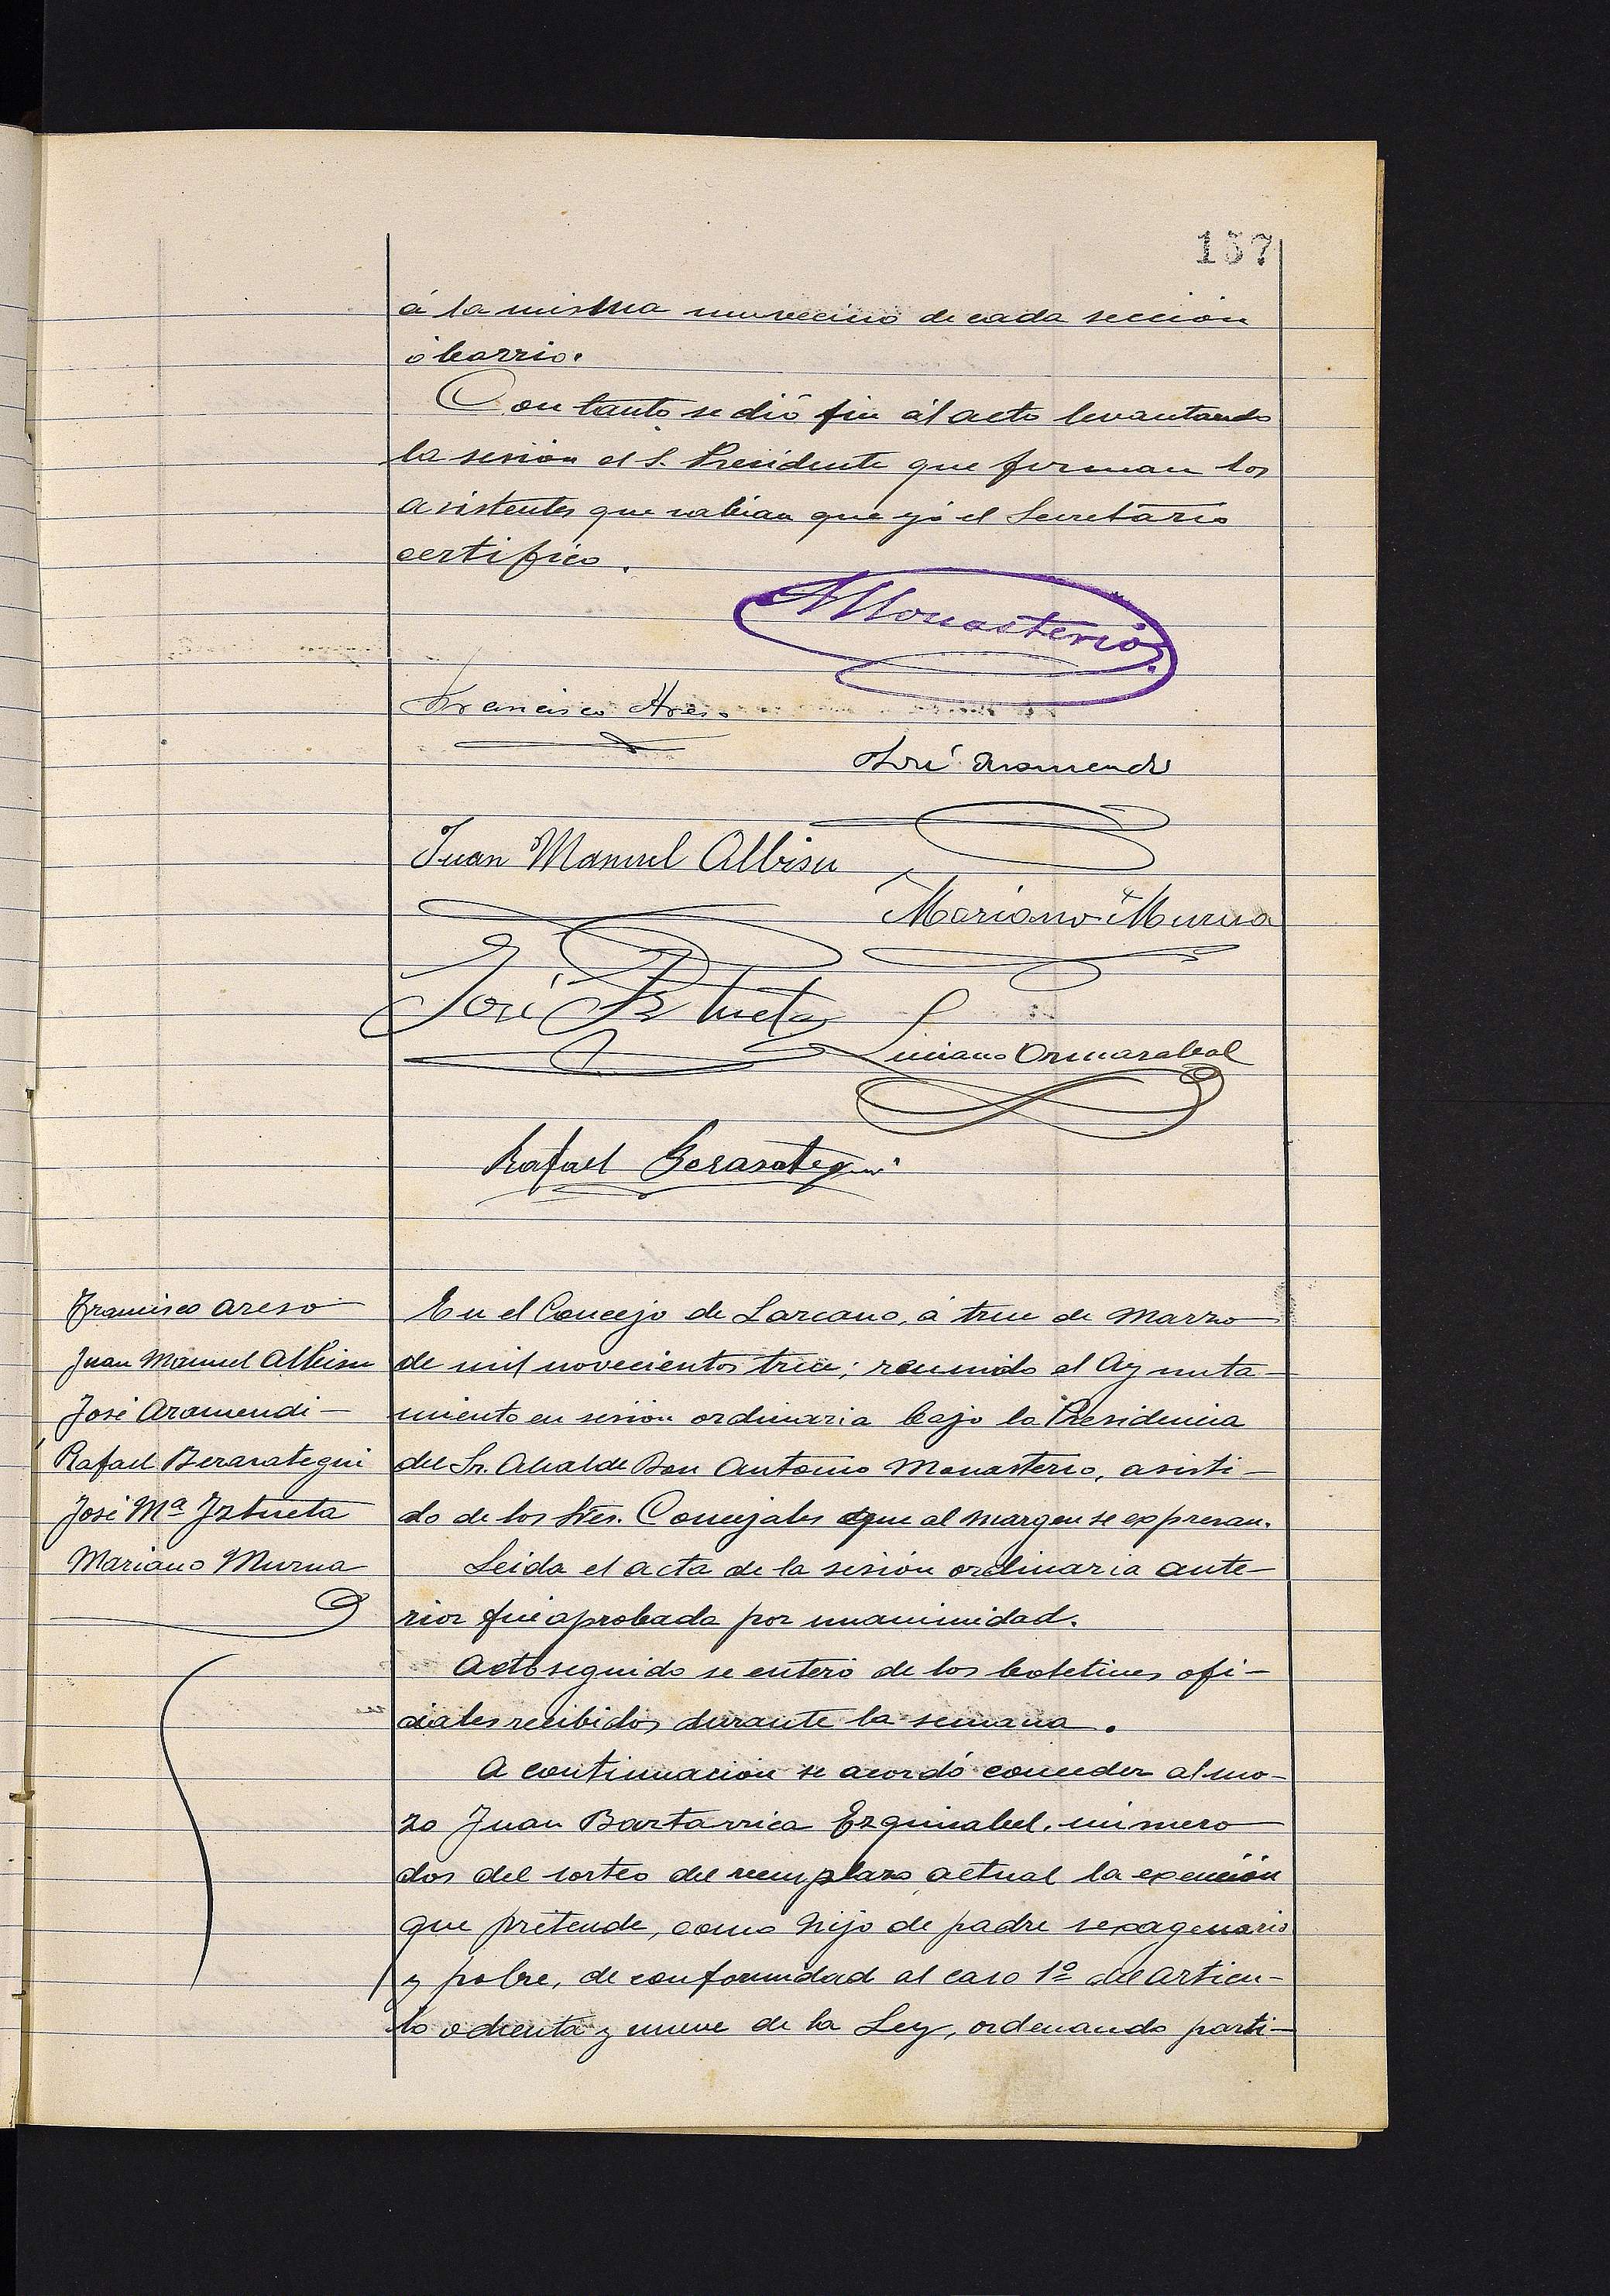 157
á la misma un vecino de cada sección
ó barrio.
Con tanto se dió fin al acto levantando
la sesión el S. Presidente que firman los
asistentes que sabian que yó el Secretario
certifico.
AMonasterio
Francisco Areso
José Aramendi
Juan Manuel Albisu
Mariano Murua
José Mª Iztueta
Luciano Ormazabal
Rafael Berasategui
Francisco Areso
Juan Manuel Albisu
José Aramendi —
Rafael Berasategui
José Mª Iztueta
Mariano Murua
En el Concejo de Lazcano, á trece de Marzo
de mil novecientos trece; reunido el Ayunta-
miento en sesión ordinaria bajo la Presidencia
del Sr. Alcalde Don Antonio Monasterio, asisti-
do de los Sres. Concejales que al margen se expresan.
Leida el acta de la sesión ordinaria ante-
rior fué aprobada por unanimidad.
Acto seguido se enteró de los boletines ofi-
ciales recibidos durante la semana.
A continuación se acordó conceder al mo-
zo Juan Bartarrica Ezquiabel, número
dos del sorteo del reemplazo actual la exención
que pretende, como hijo de padre sexagenario
y pobre, de conformidad al caso 1º del articu-
lo ochenta y nueve de la Ley, ordenando parti-